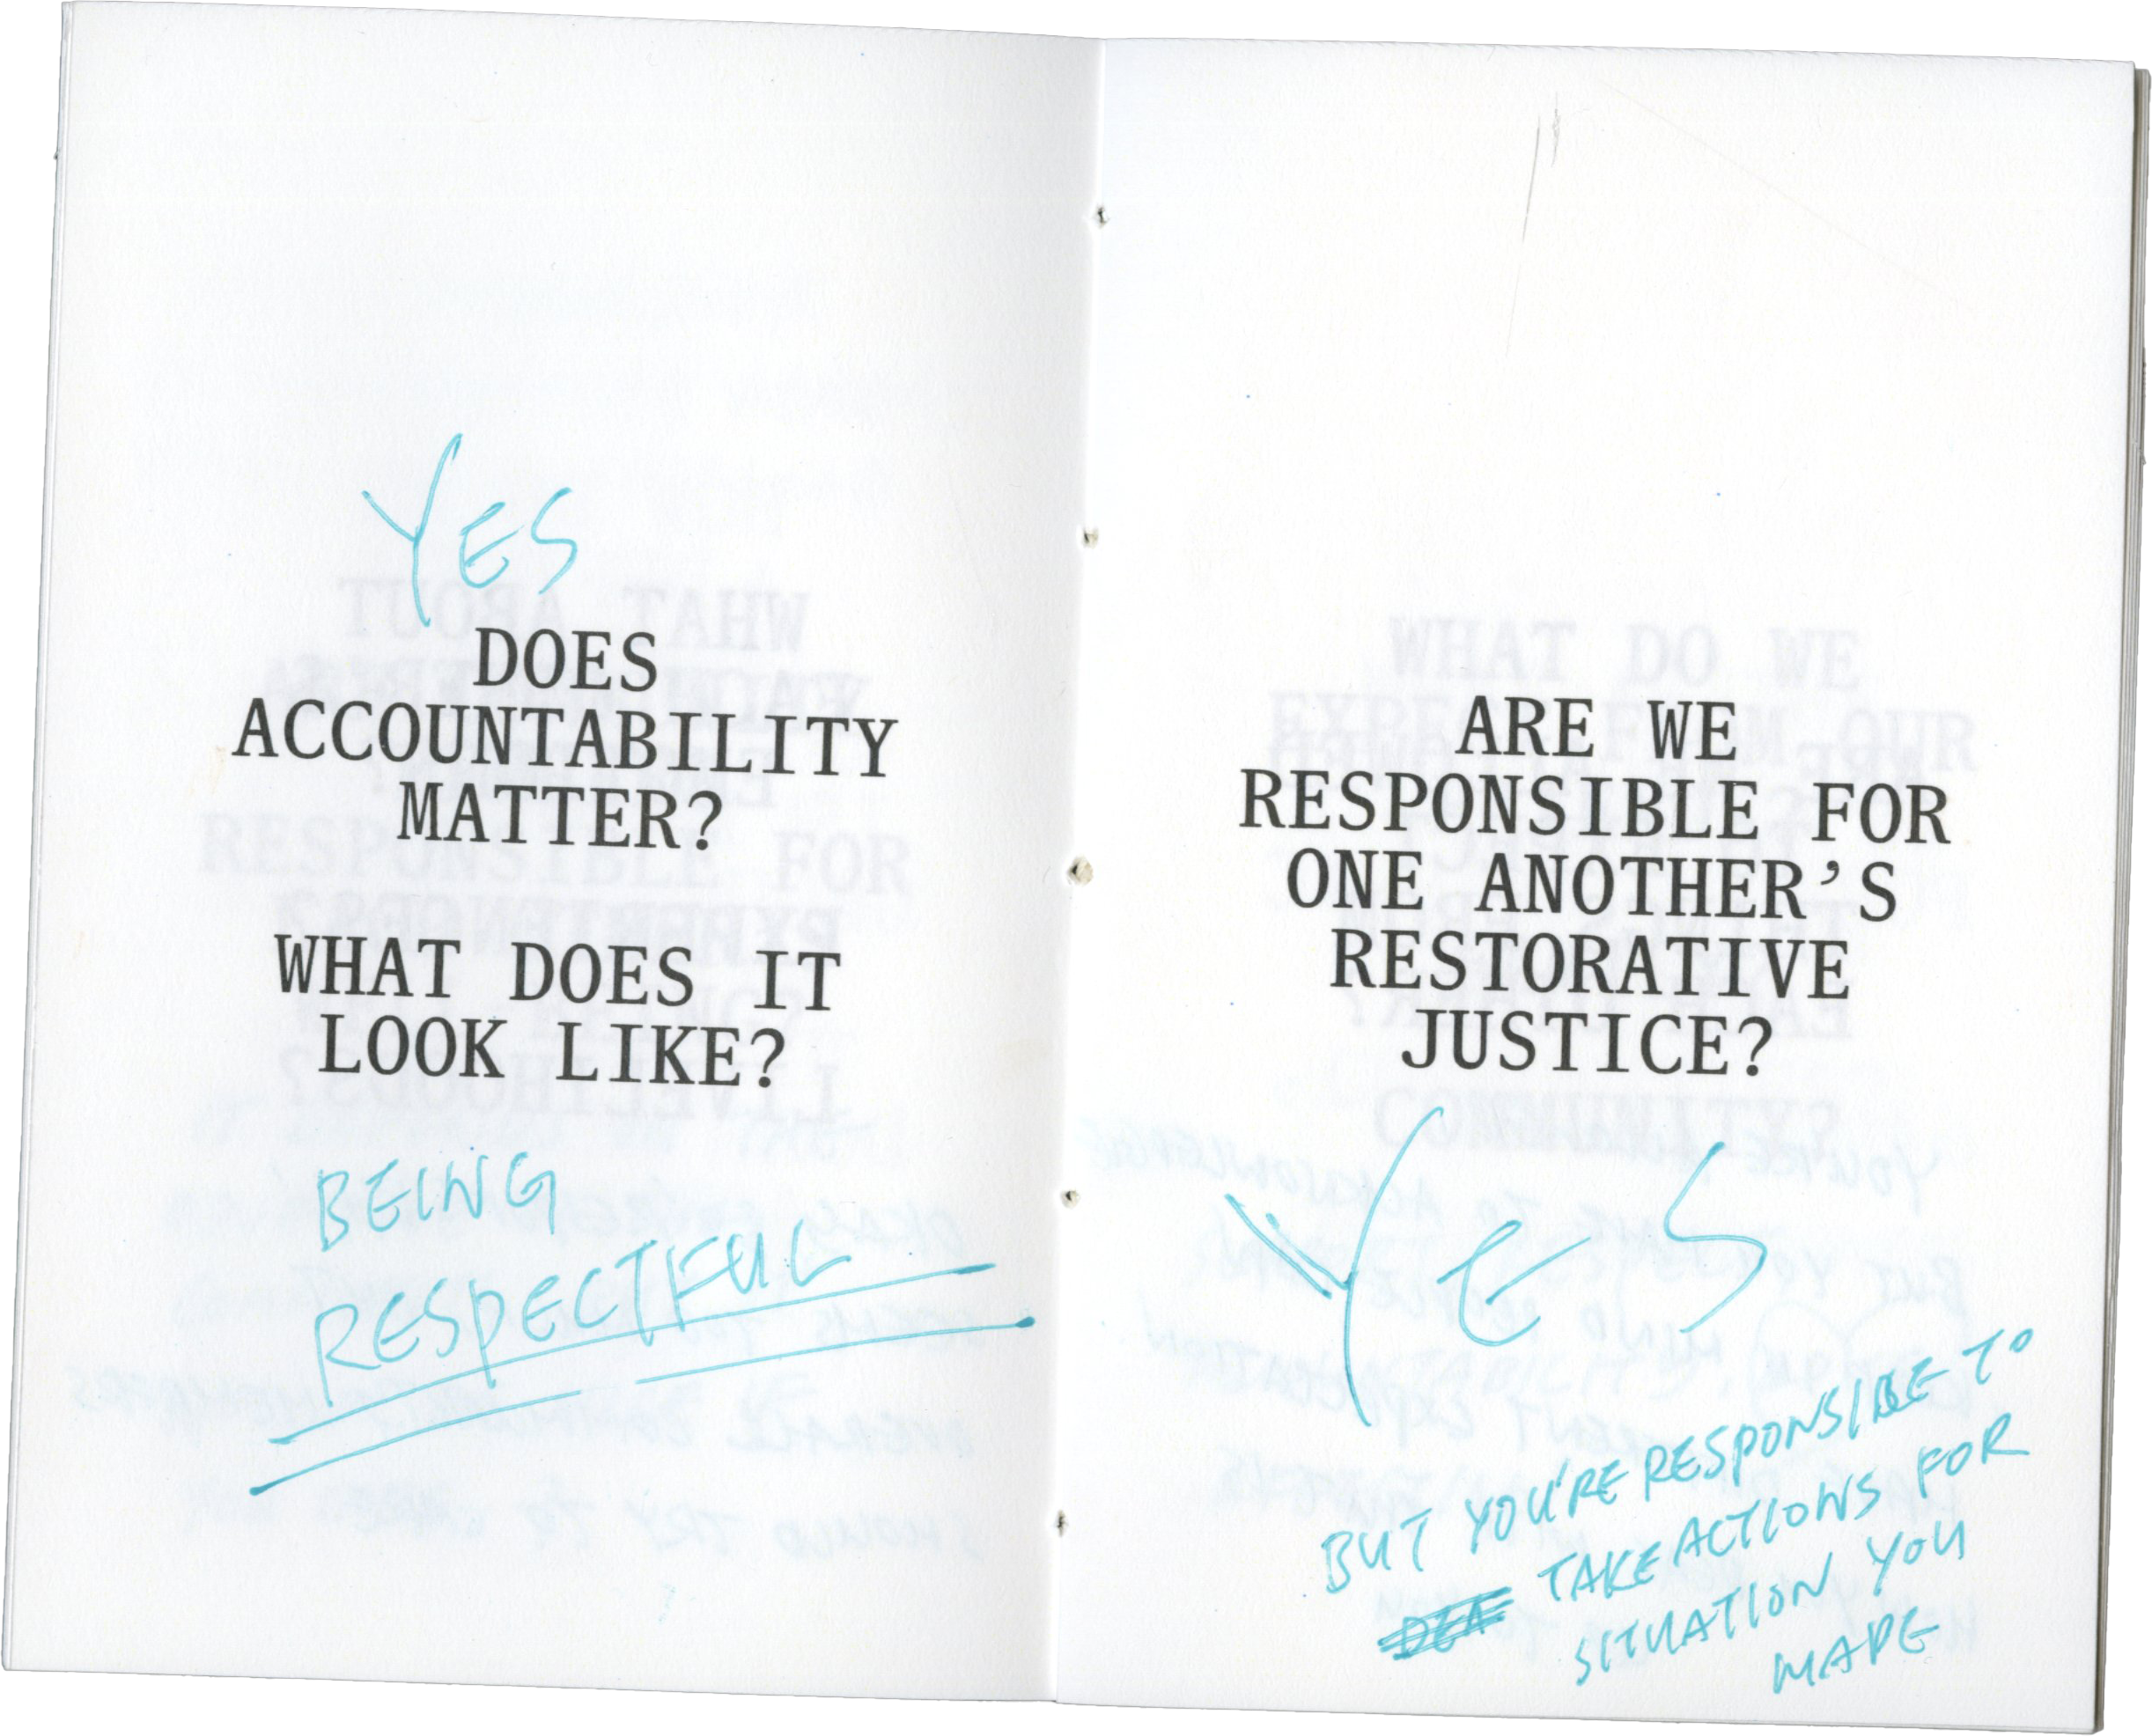 YES
DOES
ACCOUNTABILITY
MATTER?
WHAT DOES IT
LOOK LIKE?
BEING
RESPECTFUL
ARE WE
RESPONSIBLE FOR
ONE ANOTHER’S
RESTORATIVE
JUSTICE?
YES
BUT YOU'RE RESPONSIBLE TO
TAKE ACTIONS FOR
SITUATION YOU
MADE